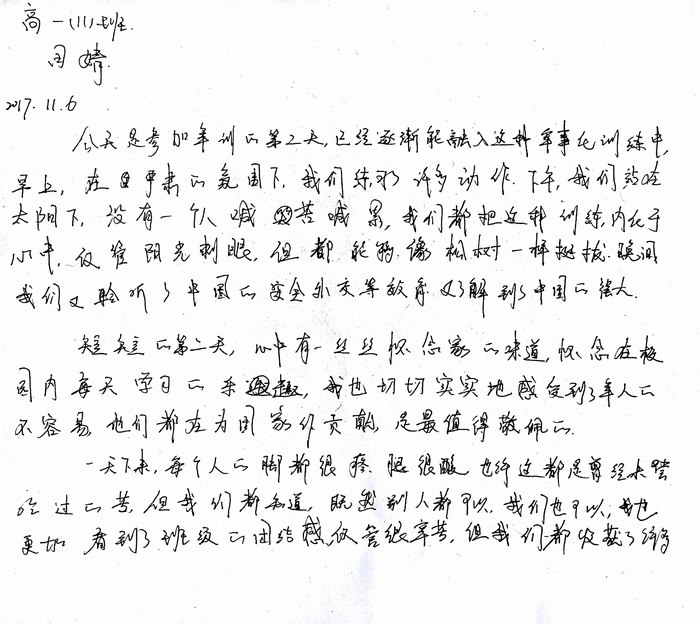 高一(11)班
周婧
2017.11.6
今天是参加军训的第二天,已经逐渐能融入这种军事化训练中,
早上,在严肃的氛围下,我们练习了许多动作.下午,我们站在
太阳下,没有一个人喊苦喊累,我们都把这种训练,内化于
心中,仅管阳光刺眼,但都能够像松树一样挺拔.晚间
我们又聆听了中国的安全外交等教育又了解到了中国的强大.
短短的第二天,心中有一丝丝怀念家的味道,怀念在校
园内每天学习的乐趣,我也切切实实地感受到了军人的
不容易,他们都在为国家作贡献,是最值得敬佩的.
一天下来,每个人的脚都很疼.腿很酸 也许这都是曾经未曾
吃过的苦,但我们都知道,既然别人都可以,我们也可以,我也
更加看到了班级的团结感,仅管很辛苦,但我们都收获了许多